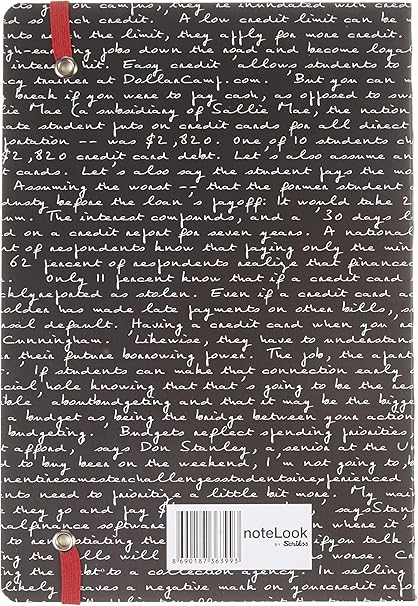 on campus... they're inundated with credit
such credit. A low credit limit can be
nts to the limit, they apply for more credit.
gh-earning jobs down the road and become loyal
interest. Easy credit 'allows students to
cy trainer at DollarCamp.com. 'But you can
break if you were to pay cash, as opposed to sw
ie Mae (a subsidiary of Sallie Mae, the nation
ate student puts on credit cards for all direct
portation -- was $2,820. One of 10 students ch
$2,820 credit card debt. Let's also assume an
t cards. Let's also say the student pays the mo
Assuming the worst -- that the former student
dustry before the loan's payoff: It would take 2
um. The interest compounds and a '30 days l
on a credit report for seven years. A national
t of respondents know that paying only the min
62 percent of respondents realize that finance
Only 11 percent know that if a credit card
chlyreported as stolen. Even if a credit card a
older has made late payments on other bills,
sal default. Having a credit card when you
Cunningham. 'Likewise, they have to understan
n their future borrowing power. The job, the apart
'If students can make that connection early
cial hole knowing that that's going to be the res
ible' aboutbudgeting and that it may be the bigge
budget as being the bridge between your action
budgeting.' Budgets reflect spending priorities,
t afford, says Don Stanley, a senior at the U
d to buy beer on the weekend, I'm not going to
entinesemesterchallengesstudentsinexperienced
ents need to prioritize a little bit more. My mai
they go and pay $ saysStan
alfinance software where it
to negotiating the ifyou talk
the bills will worse. C
ing the debt to a collection agency. In selling
likely leaves a negative mark on yourcredit rep
8690187363993
noteLook
BY Scrikss